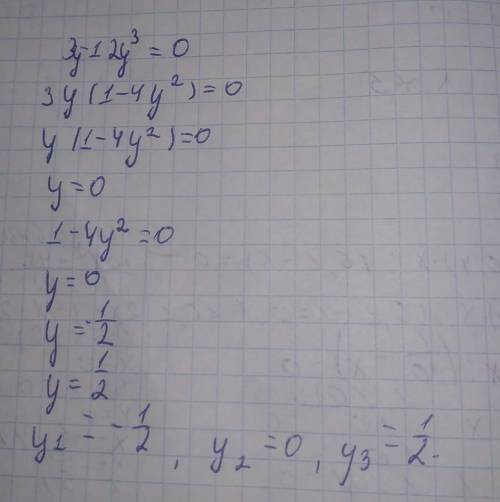 3y-12y³=0
3y(1-4y²)=0
y(1-4y²)=0
y=0
1-4y²=0
y=0
y=-1/2
y=1/2
y₁=-1/2, y₂=0, y₃=1/2.